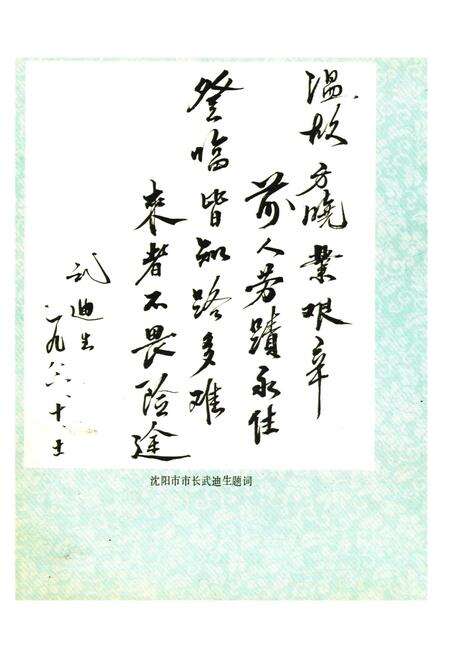 温故方晓业艰辛
前人劳蹟永佳
登临皆知路多难
来者不畏险途
武迪生
一九八六.十.
沈阳市市长武迪生题词